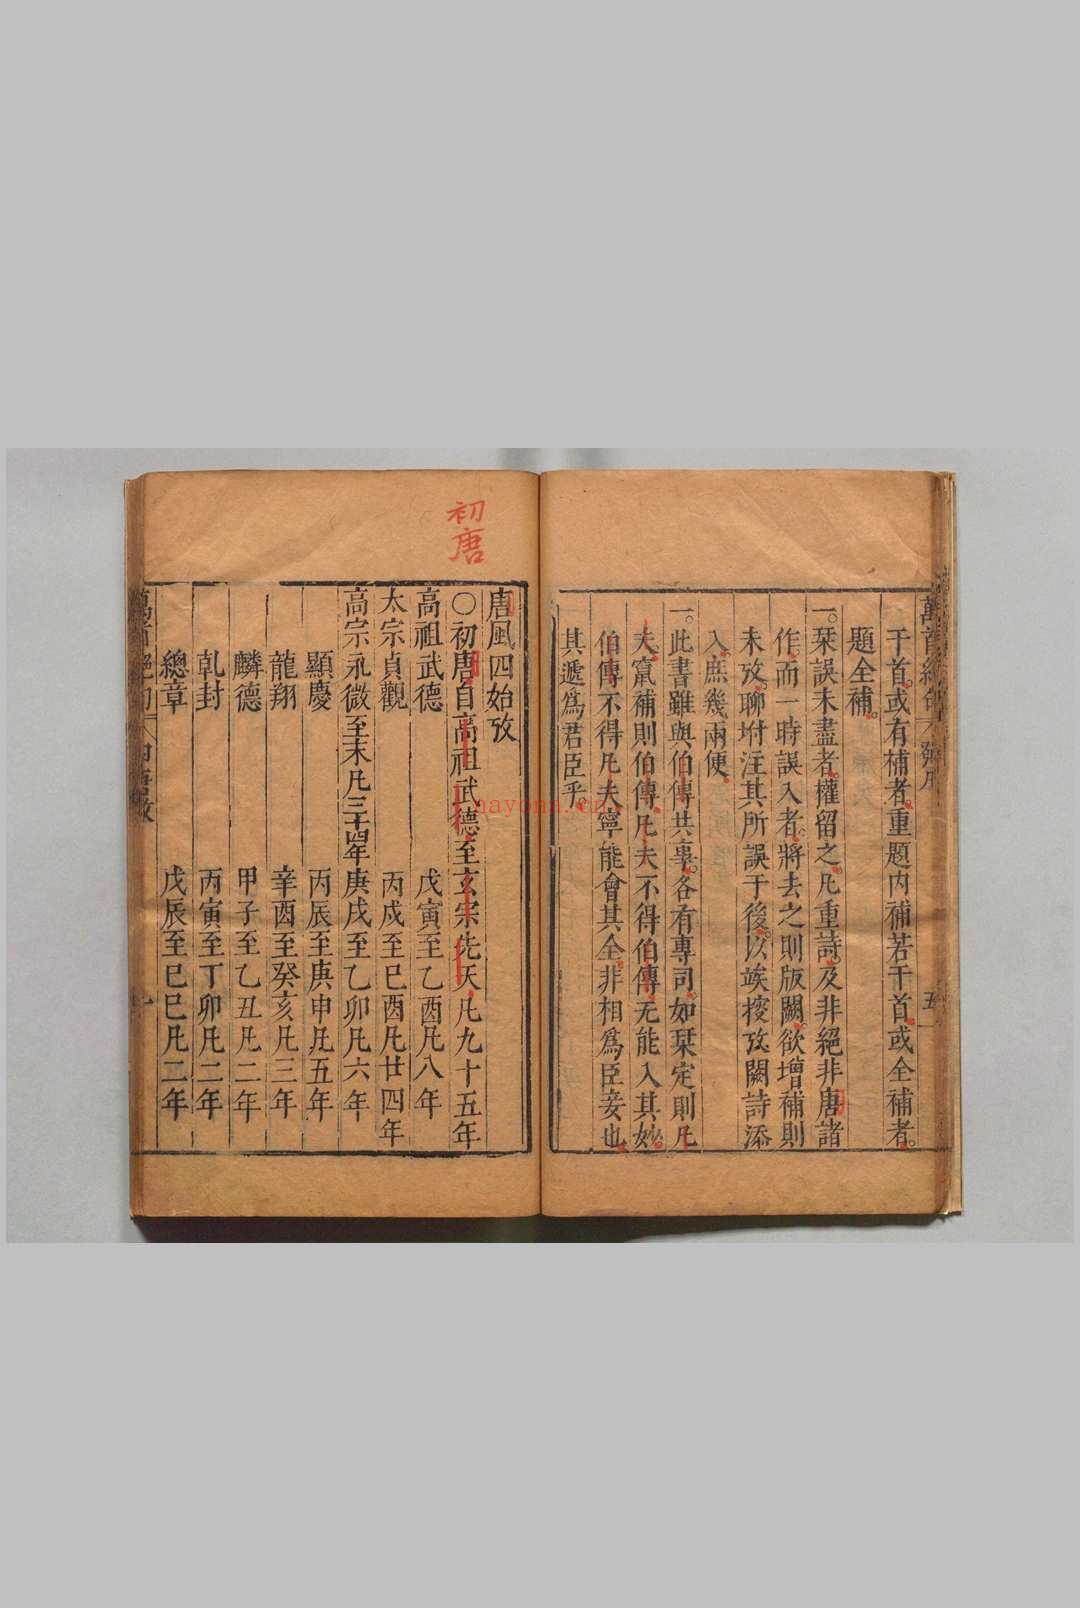 干首。或有補者重題內補若干首。或全補者。
題全補。
一。栞誤未盡者。權留之。凡重詩。及非絕非唐諸
作。而一時誤入者。將去之則版闕。欲增補則
未攷。聊坿注其所誤于後。以竢挍攷闕詩添
入。庶幾兩便。
一。此書雖與伯傳共事。各有專司。如栞定則凡
夫。竄補則伯傳。凡夫不得伯傳。无能入其妙。
伯傳不得凡夫寧能會其全。非相爲臣妾也。
其遞爲君臣乎。
初唐
唐風四始攷
○初唐自高祖武德至玄宗先天凡九十五年
高祖武德 戊寅至乙酉凡八年
太宗貞觀 丙戌至己酉凡廿四年
高宗永徽至末凡三十四年 庚戌至乙卯凡六年
顯慶 丙辰至庚申凡五年
龍翔 辛酉至癸亥凡三年
麟德 甲子至乙丑凡二年
乾封 丙寅至丁卯凡二年
總章 戊辰至己巳凡二年
nayona.cn